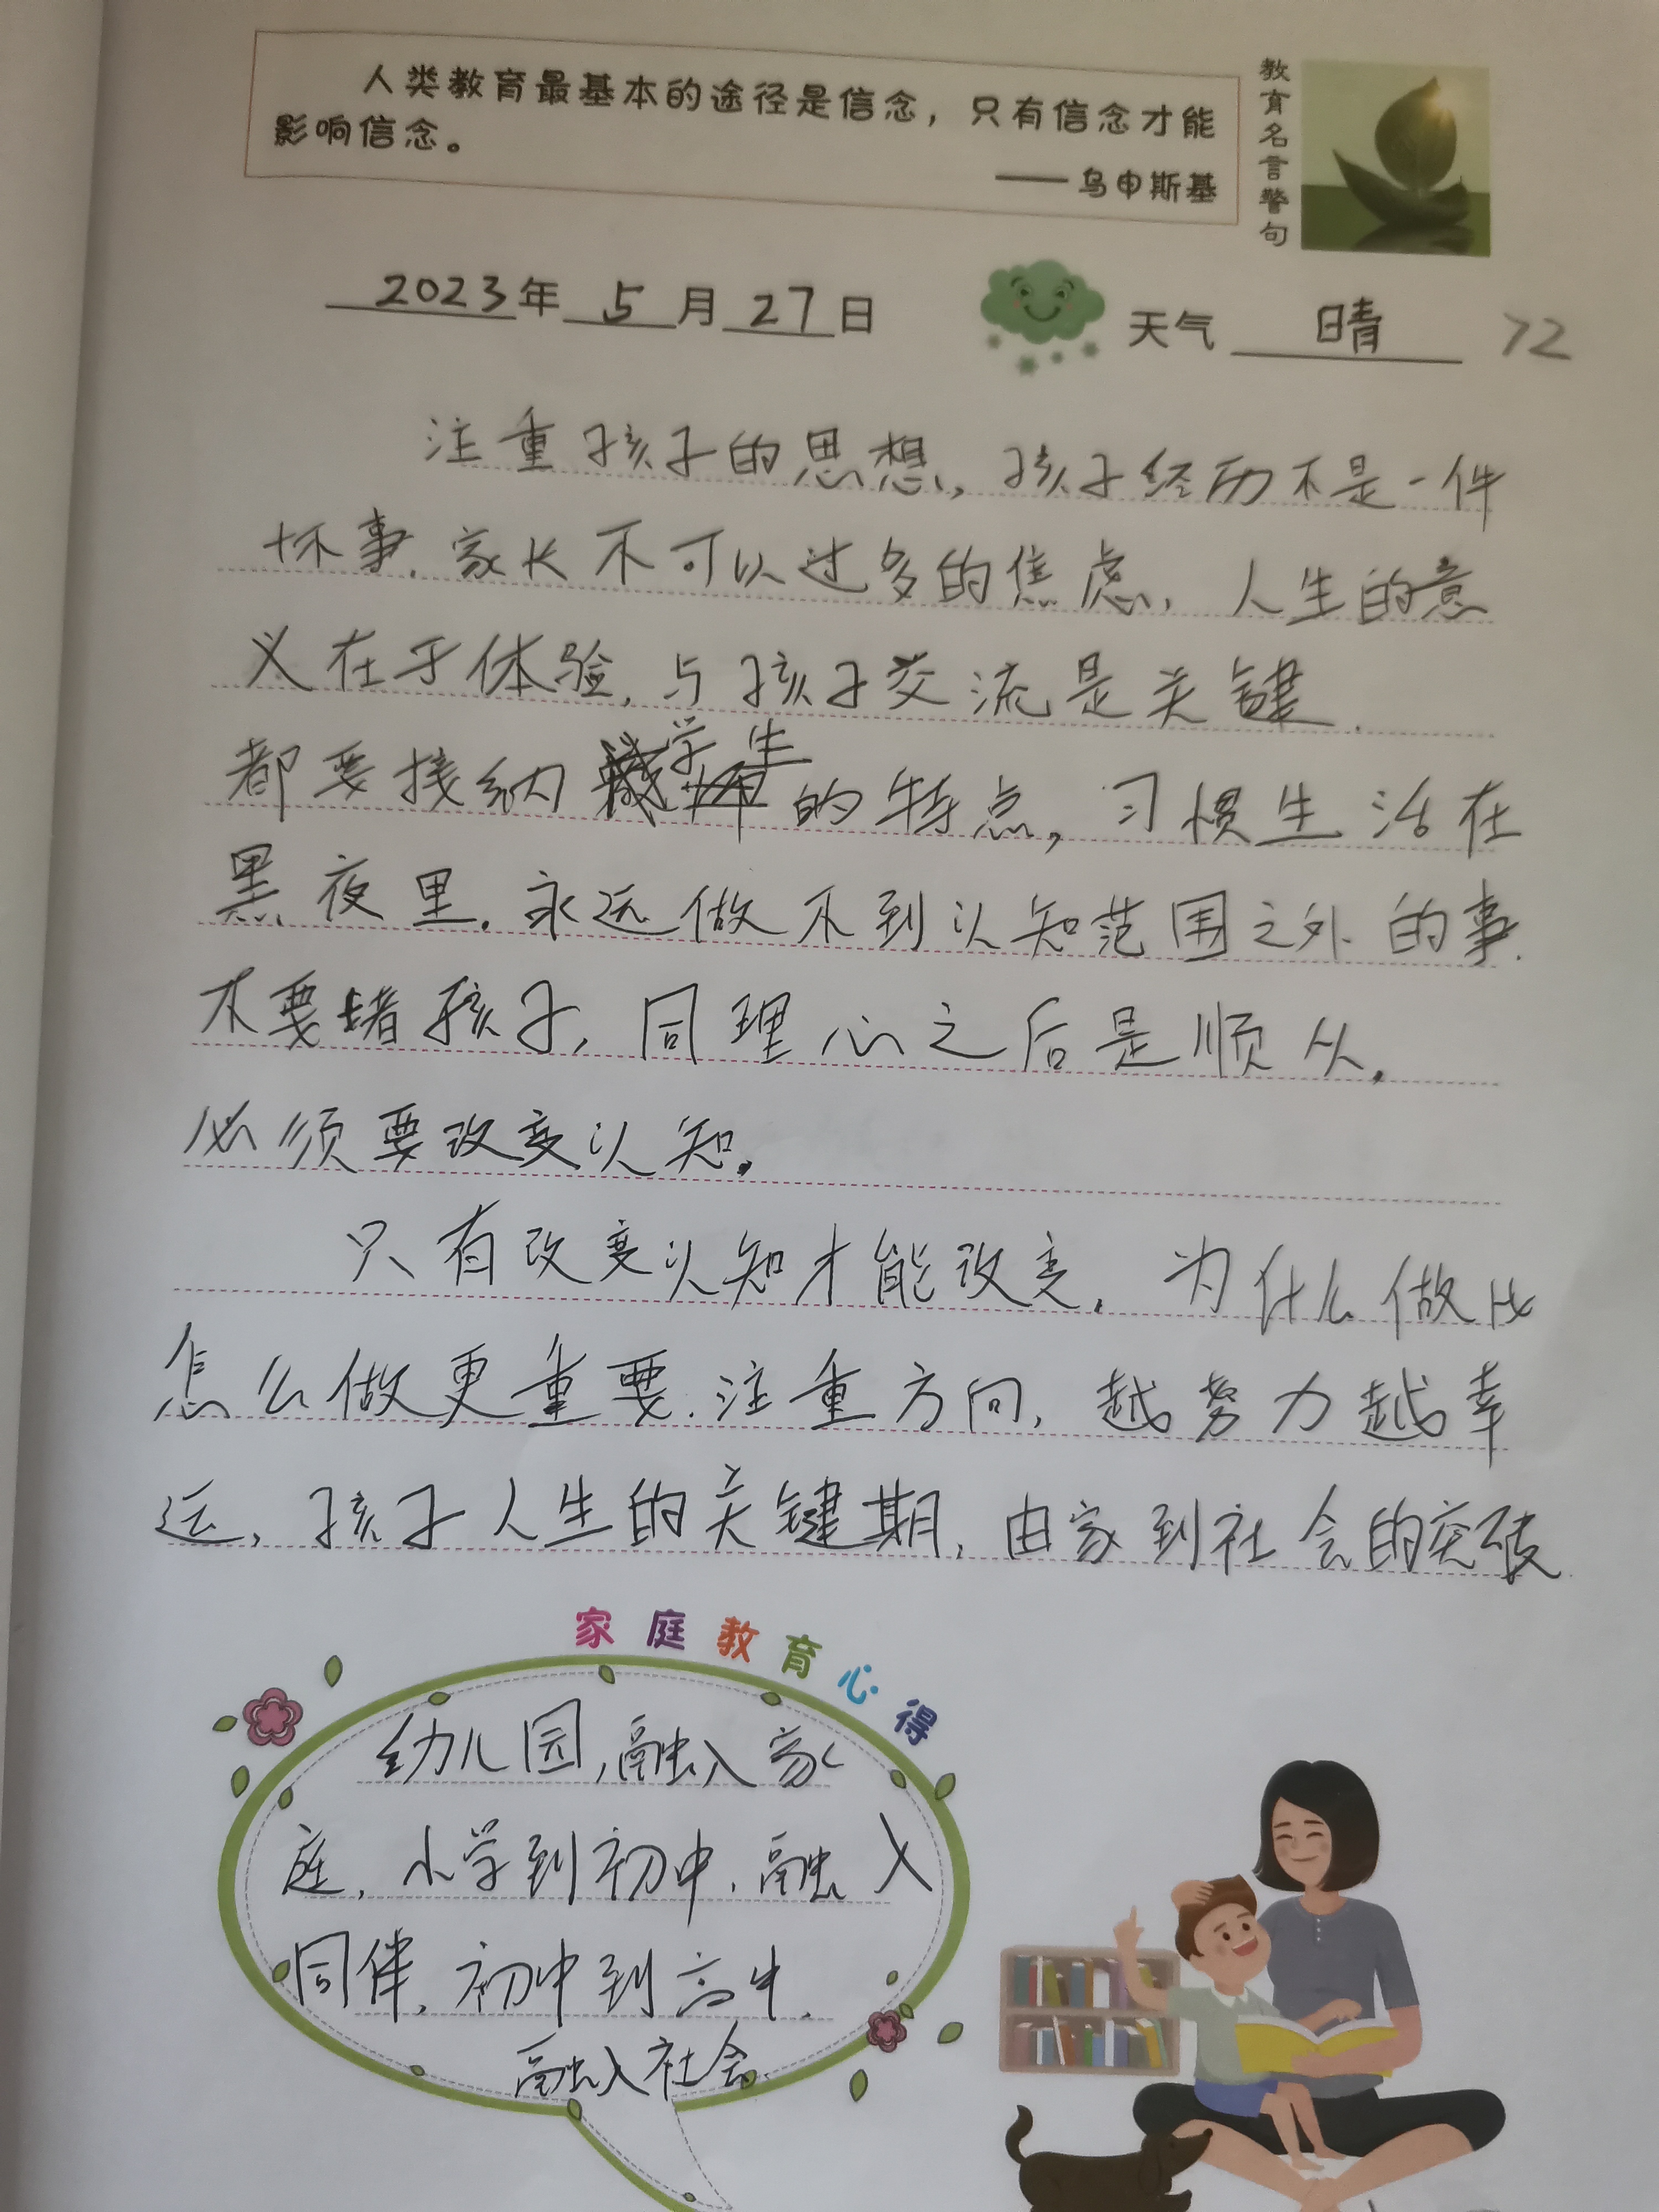 人类教育最基本的途径是信念，只有信念才能
影响信念。
——乌申斯基
教育名言警句
2023年 5月27日
天气 晴 72
注重孩子的思想，孩子经历不是一件
坏事，家长不可以过多的焦虑，人生的意
义在于体验，与孩子交流是关键．
都要接纳学生的特点，习惯生活在
黑夜里．永远做不到认知范围之外的事．
不要堵孩子，同理心之后是顺从．
必须要改变认知．
只有改变认知才能改变．为什么做比
怎么做更重要．注重方向，越努力越幸
运，孩子人生的关键期，由家到社会的突破
家庭教育心得
幼儿园，融入家
庭，小学到初中，融入
同伴，初中到高中，
融入社会．